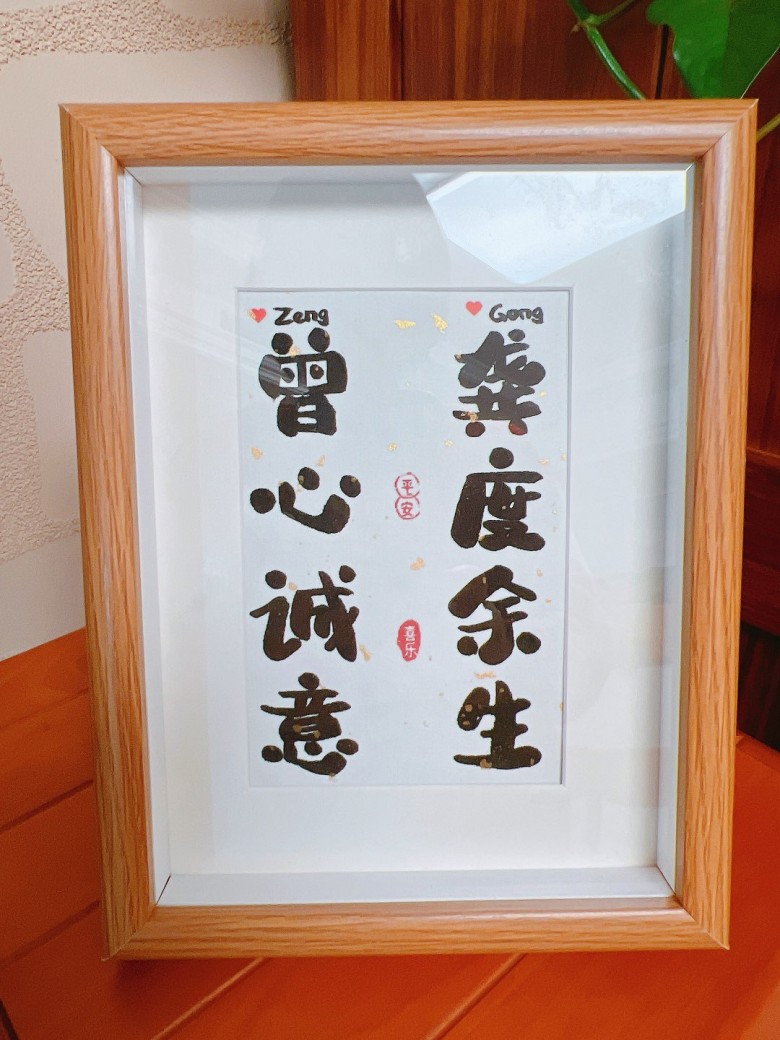 Gong
龚度余生
平安
喜乐
Zeng
曾心诚意